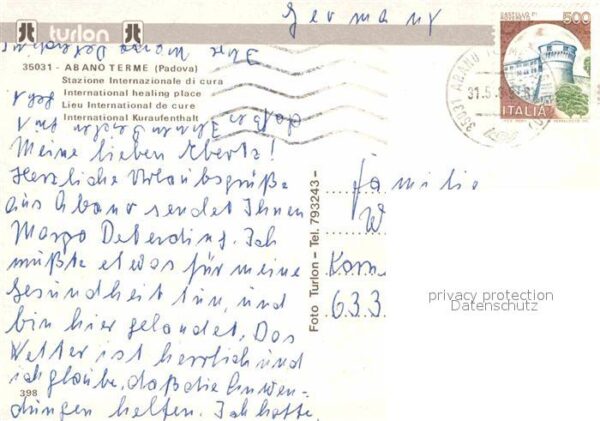 Germany
turlon
35031 - ABANO TERME (Padova)
Stazione Internazionale di cura
International healing place
Lieu International de cure
International Kuraufenthalt
Meine lieben Ebertz!
Herzliche Urlaubsgrüße
aus Abano sendet Ihnen
Margo Deterding. Ich
müßte etwas für meine
Gesundheit tun, und
bin hier gelandet. Das
Wetter ist herrlich und
ich glaube, daß die Anwen-
dungen helfen. Ich hoffe,
Ihre
398
Foto Turlon - Tel. 793243 -
500
ITALIA
35031 ABANO
31.5.
Familie
W
633
privacy protection
Datenschutz